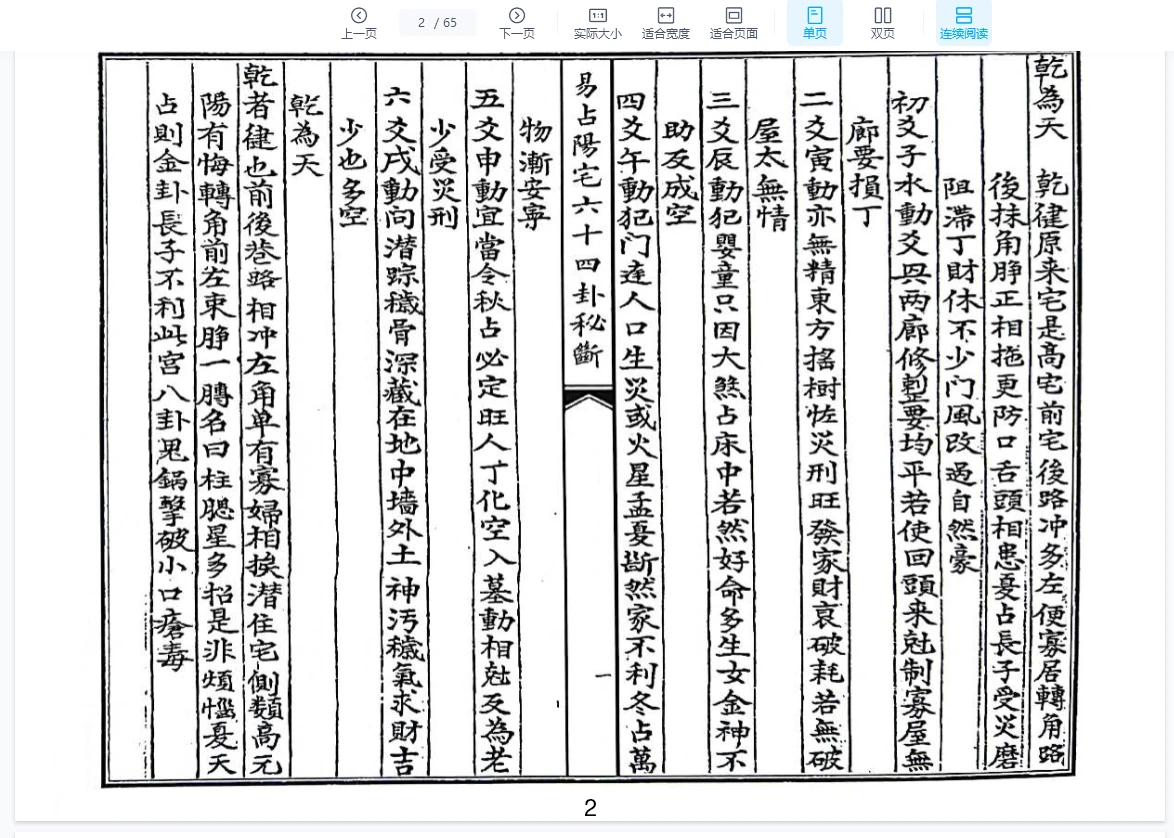 上一页
2 / 65
下一页
实际大小
适合宽度
适合页面
单页
双页
连续阅读
乾為天 乾健原来宅是高宅前宅後路冲多左便寡居轉角路
後抹角脾正相拖更防口舌頭相患夏占長子受災磨
阻滯丁財休不少门風改過自然豪
初爻子水動爻興两廊修整要均平若使回頭来尅制寡屋無
廊要損丁
二爻寅動亦無精東方搖樹恠災刑旺發家財哀破耗若無破
屋太無情
三爻辰動犯嬰童只因大煞占床中若然好命多生女金神不
助反成空
四爻午動犯门逹人口生災或火星孟夏斷然家不利冬占萬
物漸安寧
易占陽宅六十四卦秘斷
一
五爻申動宜當令秋占必定旺人丁化空入墓動相尅反為老
少受災刑
六爻戌動问潜踪穢骨深藏在地中墻外土神污穢氣求財吉
少也多空
乾為天
乾者健也前後巷路相冲左角单有寡婦相挨潜住宅側類高元
陽有悔轉角前左束脾一膊名曰柱腮星多招是非煩惱夏天
占則金卦長子不利此宫八卦鬼鍋擊破小口瘡毒
2